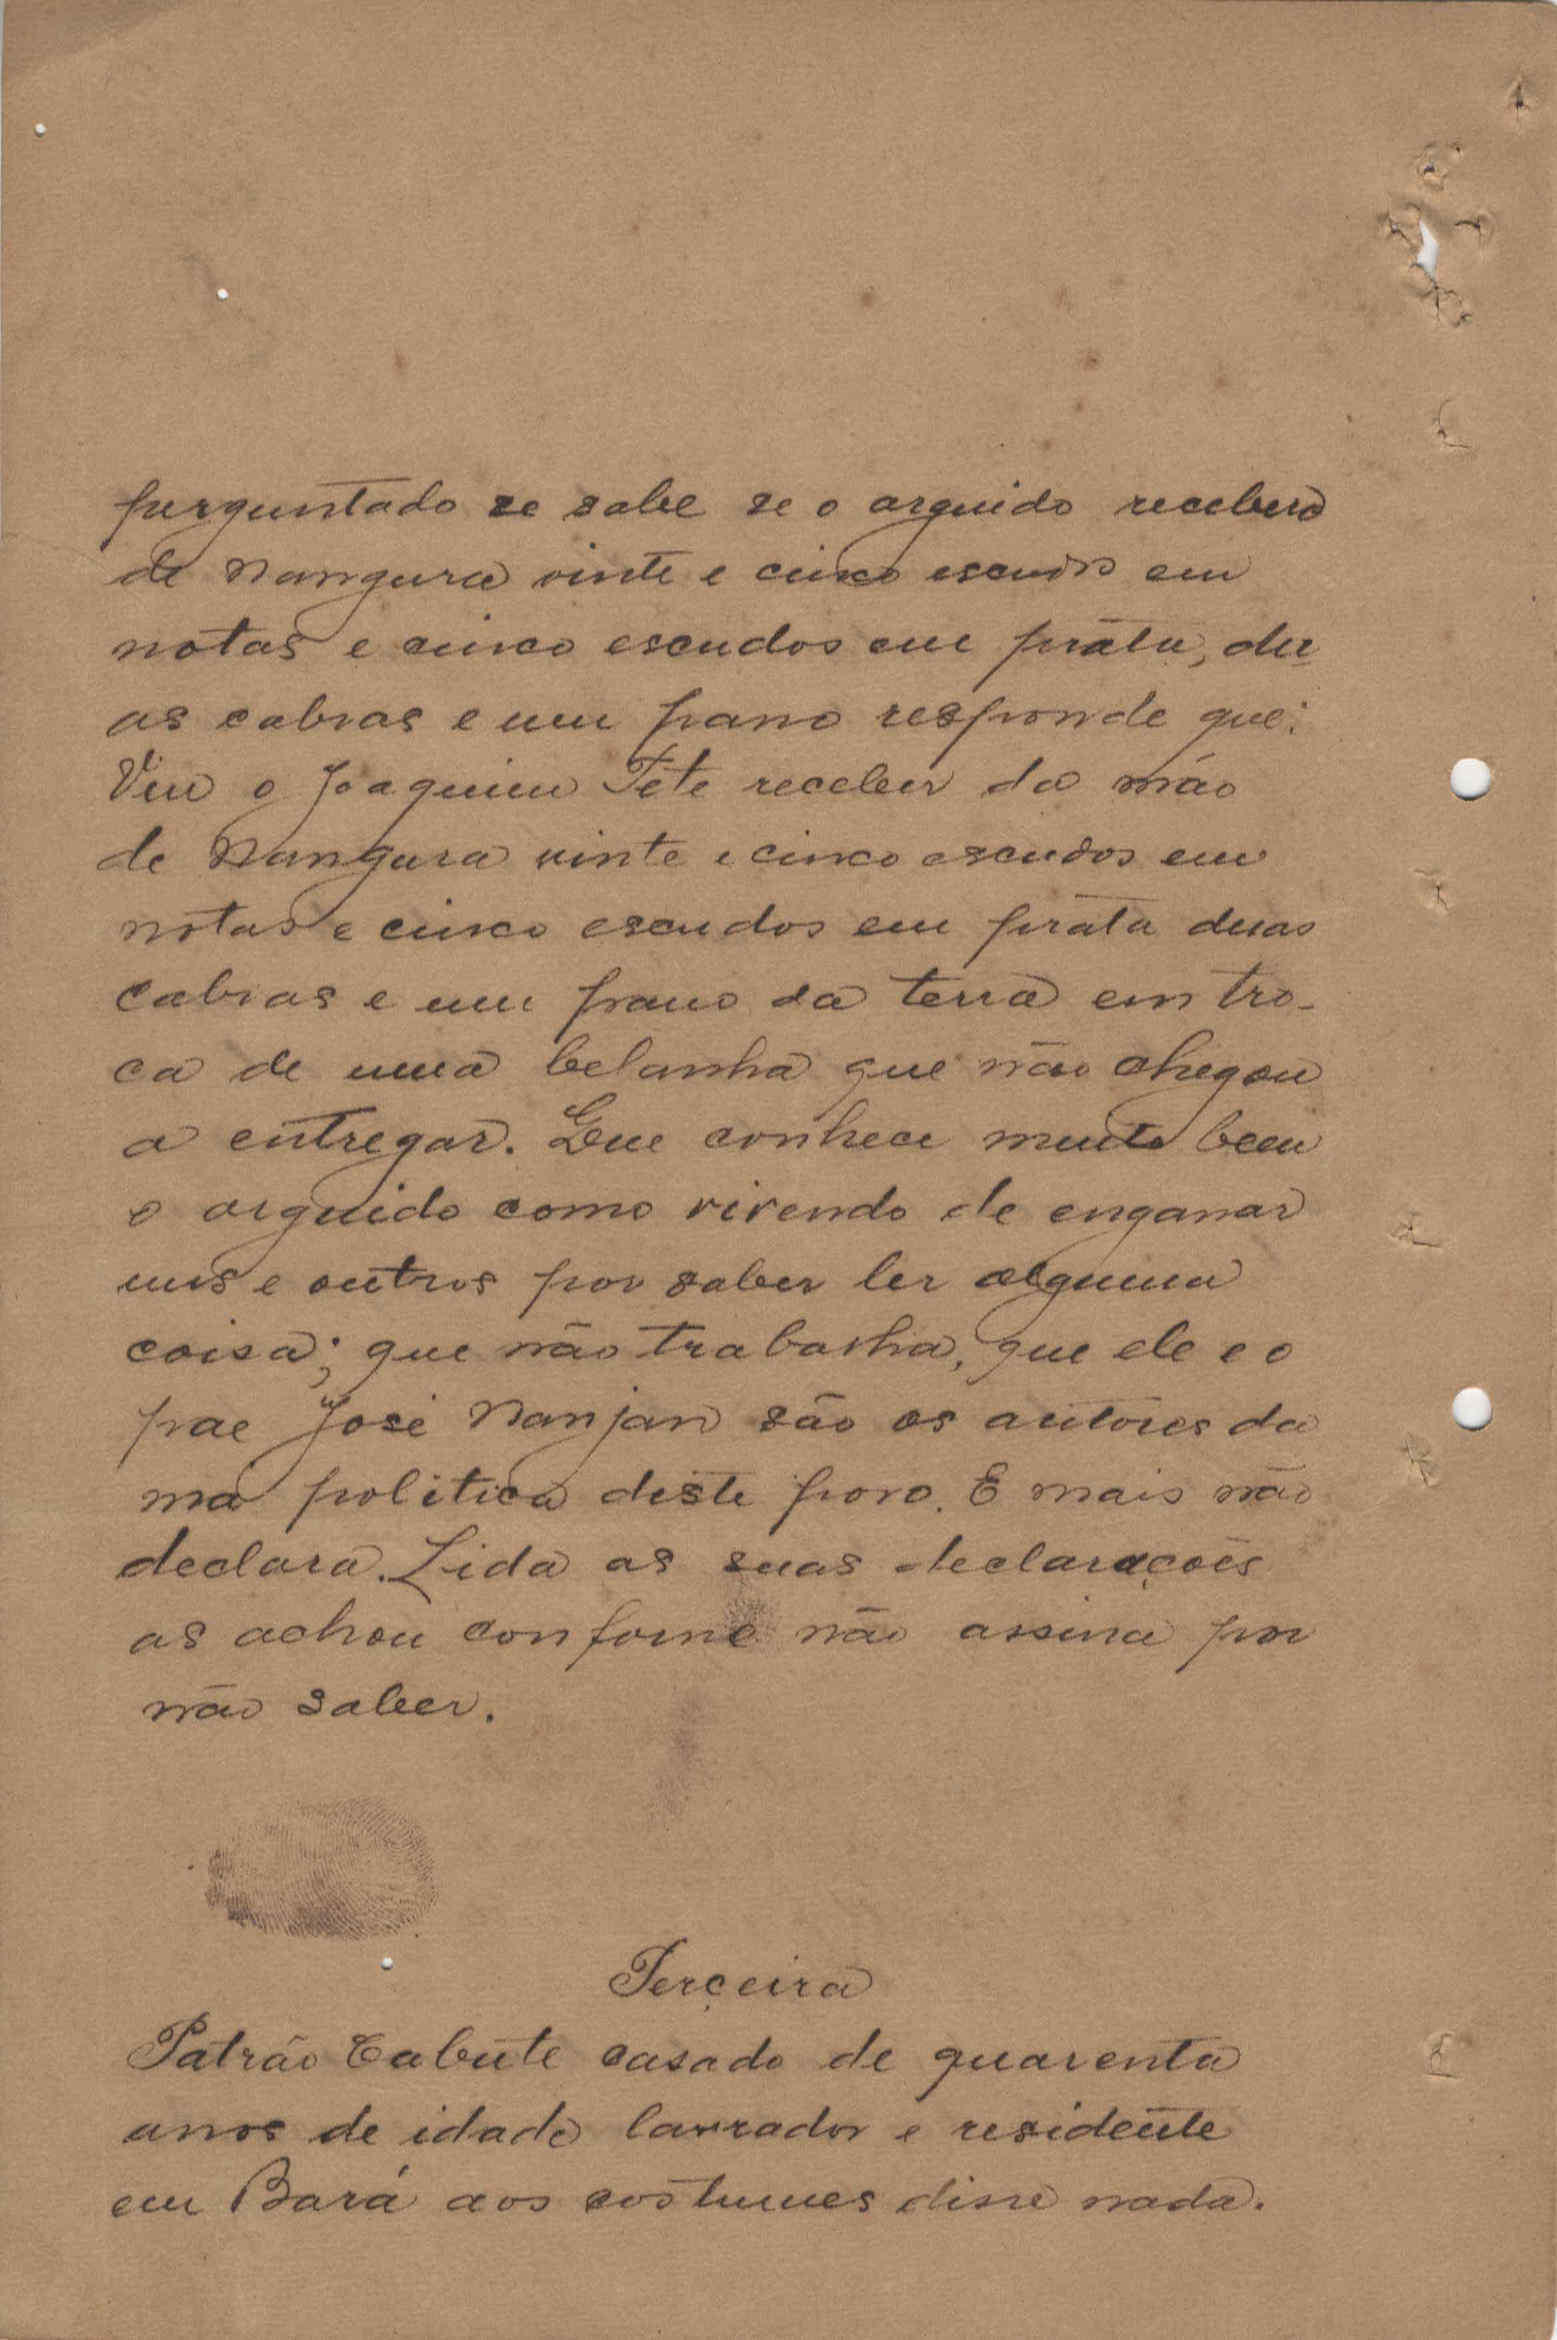 perguntado se sabe se o arguido recebera
de Nangura vinte e cinco escudos em
notas e cinco escudos em prata, du
as cabras e um pano responde que:
Viu o Joaquim Tete receber da mão
de Nangura vinte e cinco escudos em
notas e cinco escudos em prata duas
cabras e um pano da terra em tro-
ca de uma belanha que não chegou
a entregar. Que conhece muito bem
o arguido como vivendo de enganar
uns e outros por saber ler alguma
coisa; que não trabalha, que ele e o
pae José Nanjan são os autores da
má politica deste povo. E mais não
declara. Lida as suas declarações
as achou conforme não assina por
não saber.
Terceira
Patrão Cabute casado de quarenta
anos de idade lavrador e residente
em Bará aos costumes disse nada.